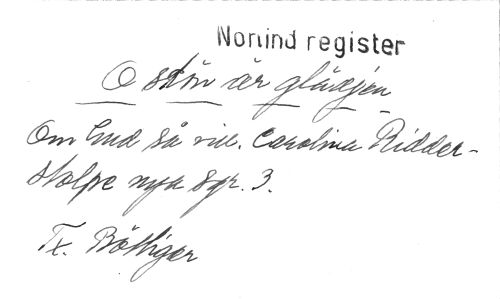 Nonind register
O skön är glädjen
Om Gud så vill. Carolina Ridder-
stolpe nya sgr. 3.
Tx. Böttiger